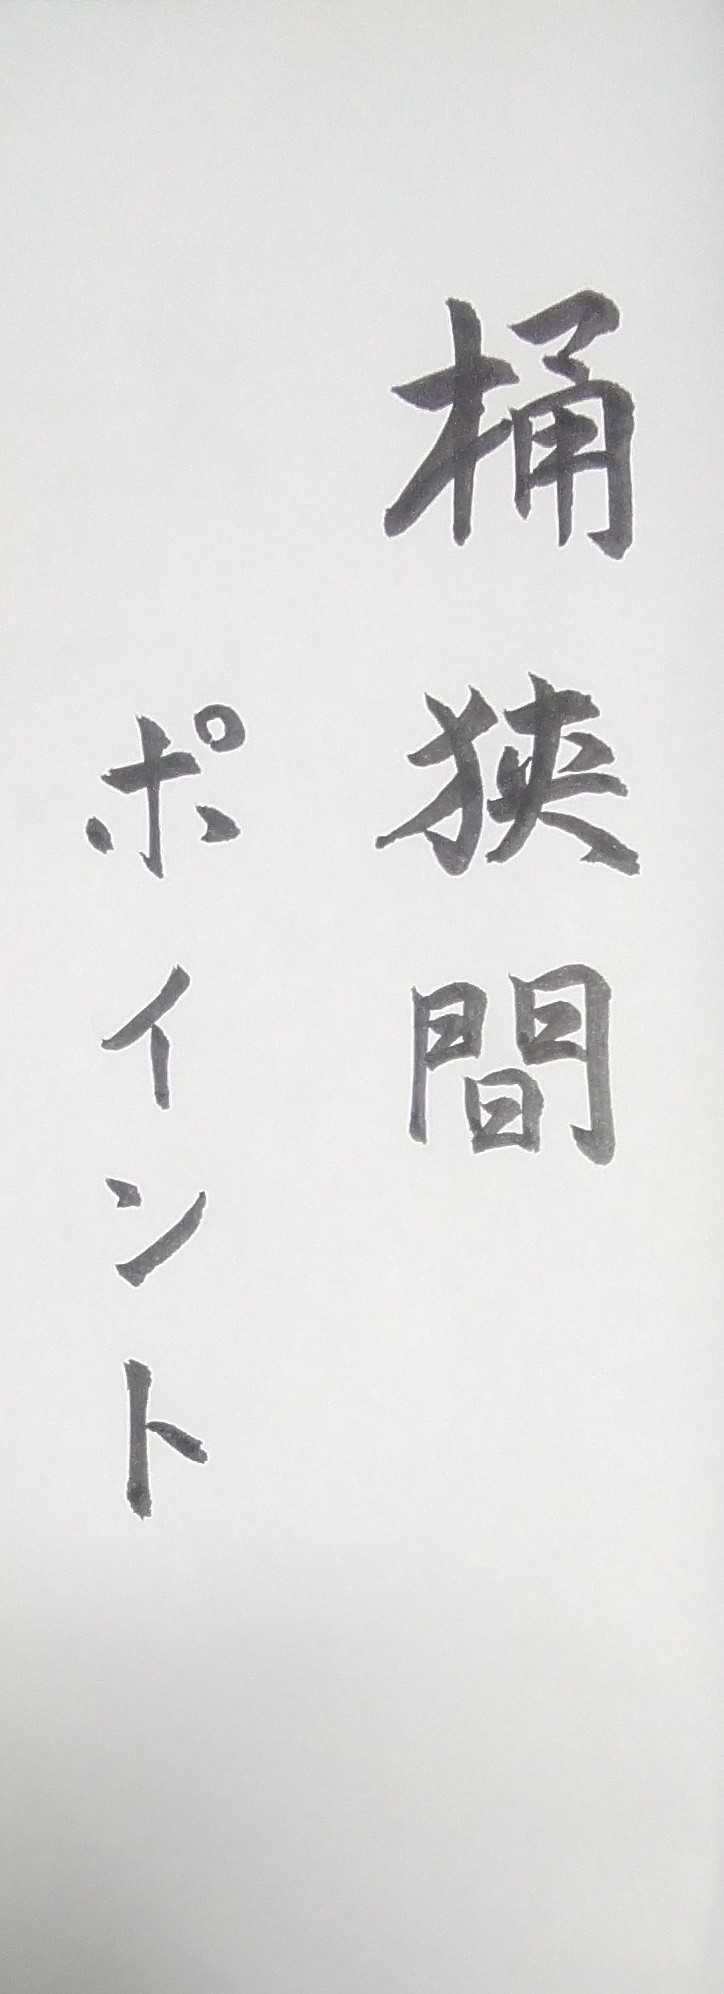 桶狭間
ポイント